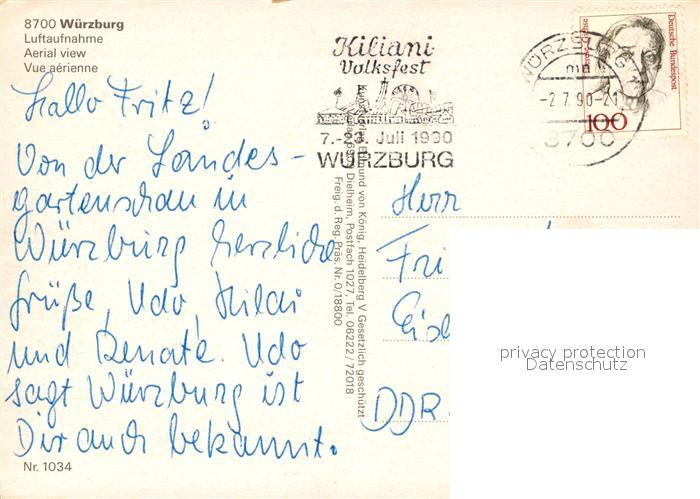 8700 Würzburg
Luftaufnahme
Aerial view
Vue aérienne
Hallo Fritz!
Von der Landes-
gartenschau in
Würzburg herzliche
Grüße, Udo, Hildi
und Renate. Udo
sagt Würzburg ist
Dir auch bekannt.
Nr. 1034
Kiliani
Volksfest
7.-23. Juli 1990
WÜRZBURG
und von König, Heidelberg V Gesetzlich geschützt
Dielheim, Postfach 1027, Tel. 06222/72018
Freig. d. Reg. Präs. Nr. 0/18800
WÜRZBURG
-2.7.90-21
8700
Deutsche Bundespost
100
Herr
Fri
DDR
privacy protection
Datenschutz